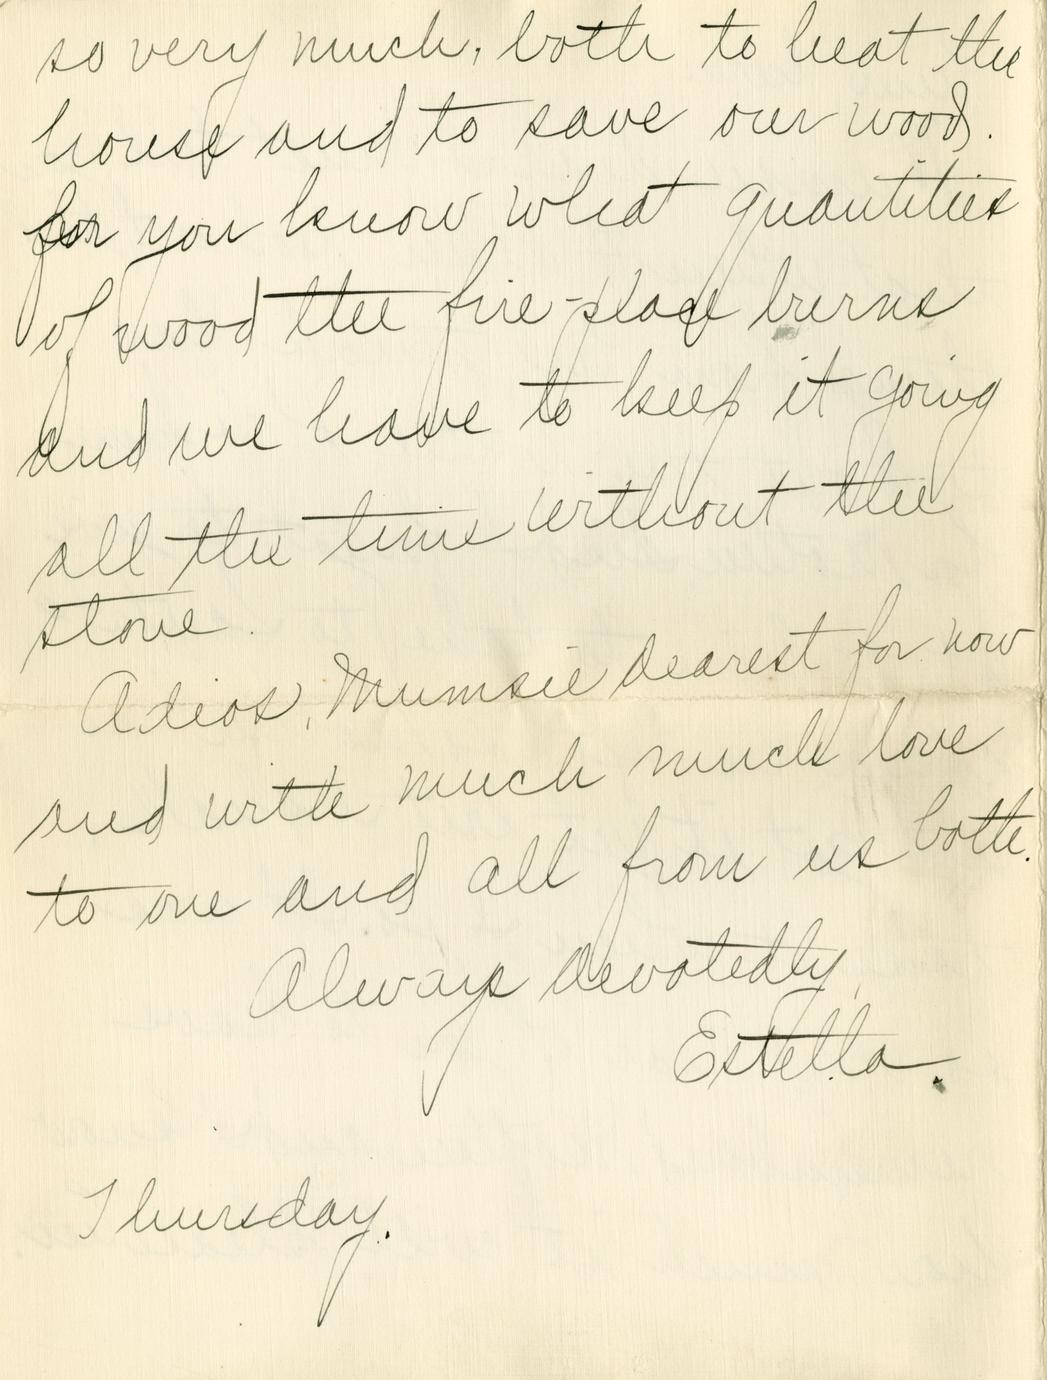 so very much, both to heat the
house and to save our wood.
for you know what quantities
of wood the fire-place burns
and we have to keep it going
all the time without the
stove.
Adios, Mumsie dearest for now
and with much much love
to one and all from us both.
Always devotedly,
Estella.
Thursday.